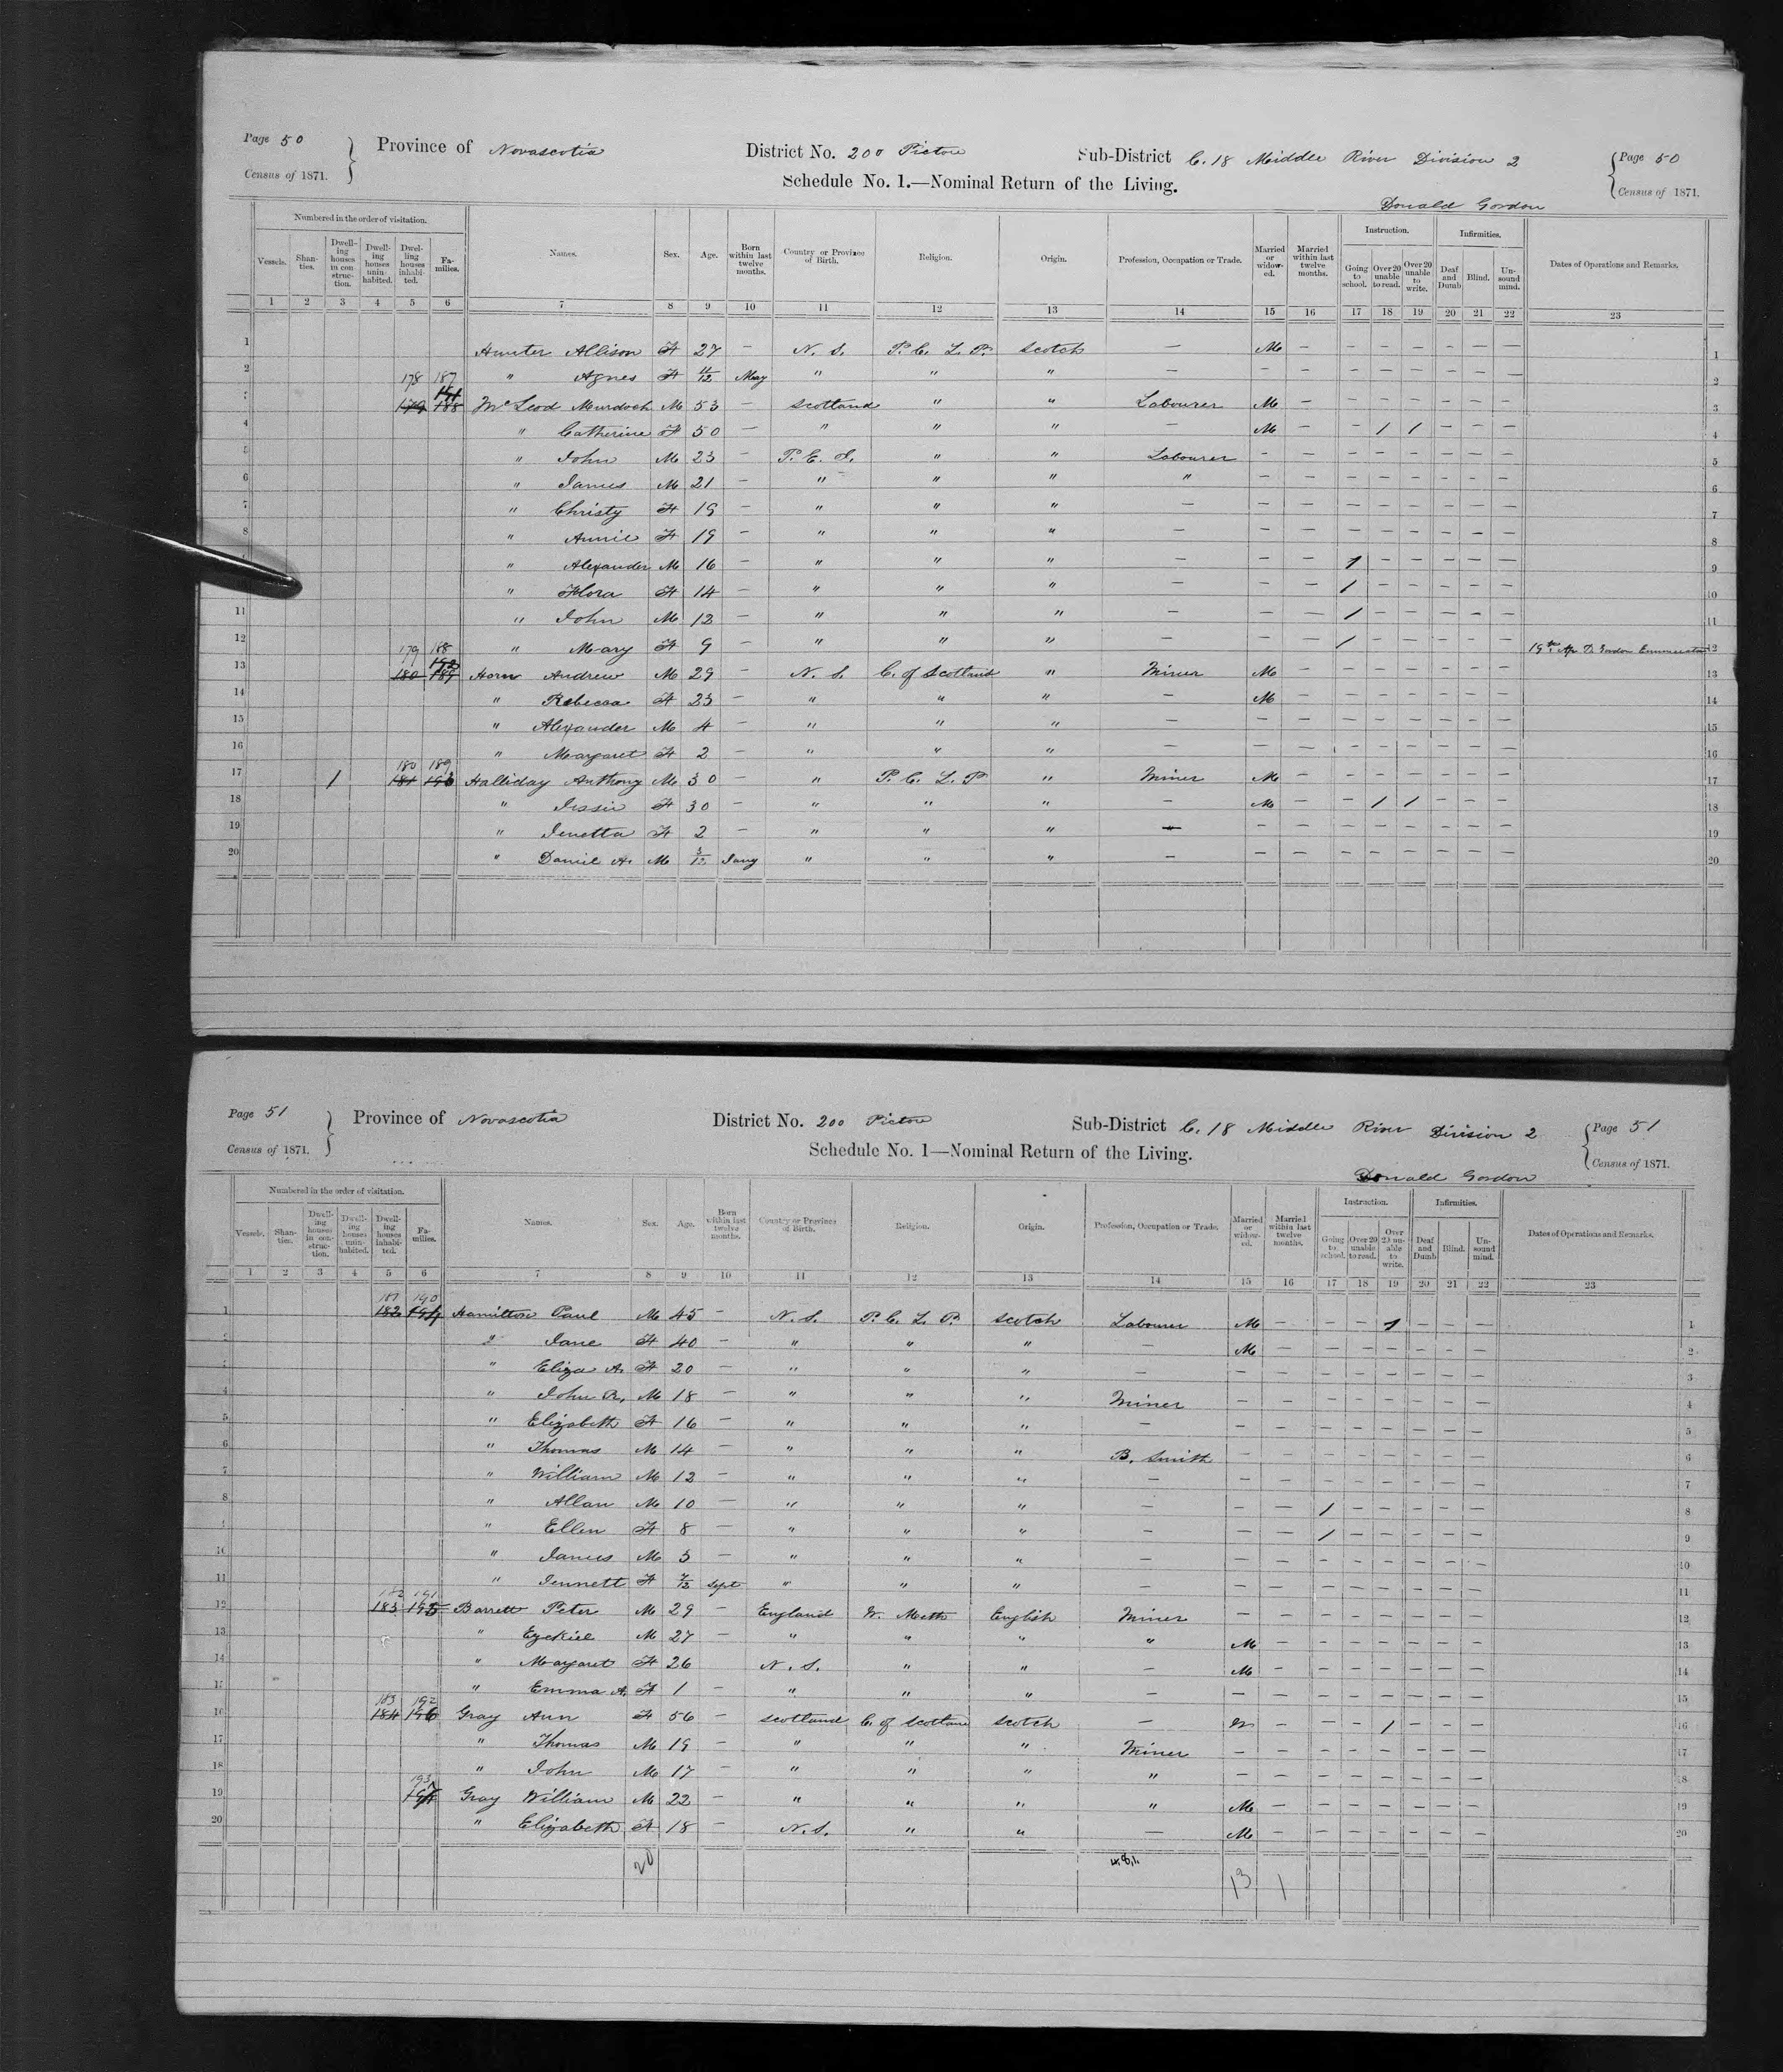 Page 50
Census of 1871.
Province of Novascotia
District No. 200 Pictou
Sub-District C. 18 Middle River Division 2
Page 50
Census of 1871.
Schedule No. 1.—Nominal Return of the Living.
Donald Gordon
Numbered in the order of visitation.
Instruction.
Infirmities.
Vessels. Shanties. Dwelling houses in construction. Dwelling houses uninhabited. Dwelling houses inhabited. Families. Names. Sex. Age. Born within last twelve months. Country or Province of Birth. Religion. Origin. Profession, Occupation or Trade. Married or widowed. Married within last twelve months. Going to school. Over 20 unable to read. Over 20 unable to write. Deaf and Dumb Blind. Unsound mind. Dates of Operations and Remarks.
1 2 3 4 5 6 7 8 9 10 11 12 13 14 15 16 17 18 19 20 21 22 23
1 Hunter Allison F 27 — N. S. P. C. L. P. Scotch — M — — — — — — — 1
2 " Agnes F 11/12 May " " " — — — — — — — — — 2
178 187
3 179 188 McLeod Murdoch M 53 — Scotland " " Labourer M — — — — — — — 3
4 " Catherine F 50 — " " " — M — — 1 1 — — — 4
5 " John M 23 — P. E. I. " " Labourer — — — — — — — — 5
6 " James M 21 — " " " " — — — — — — — — 6
7 " Christy F 19 — " " " — — — — — — — — — 7
8 " Annie F 19 — " " " — — — — — — — — — 8
" Alexander M 16 — " " " — — — 1 — — — — — 9
" Flora F 14 — " " " — — — 1 — — — — — 10
11 " John M 12 — " " " — — — 1 — — — — — 11
12 " Mary F 9 — " " " — — — 1 — — — — — 19th Ap D. Gordon Enumerator 12
179 188
13 180 189 Horn Andrew M 29 — N. S. C. of Scotland " Miner M — — — — — — — 13
14 " Rebecca F 23 — " " " — M — — — — — — — 14
15 " Alexander M 4 — " " " — — — — — — — — — 15
16 " Margaret F 2 — " " " — — — — — — — — — 16
180 189
17 1 181 190 Halliday Anthony M 30 — " P. C. L. P " Miner M — — — — — — — 17
18 " Jessie F 30 — " " " — M — — 1 1 — — — 18
19 " Jenetta F 2 — " " " — — — — — — — — — 19
20 " Daniel A. M 3/12 Jany " " " — — — — — — — — — 20
Page 51
Census of 1871.
Province of Novascotia
District No. 200 Pictou
Sub-District C. 18 Middle River Division 2
Page 51
Census of 1871.
Schedule No. 1—Nominal Return of the Living.
Donald Gordon
Numbered in the order of visitation.
Instruction.
Infirmities.
Vessels. Shanties. Dwelling houses in construction. Dwelling houses uninhabited. Dwelling houses inhabited. Families. Names. Sex. Age. Born within last twelve months. Country or Province of Birth. Religion. Origin. Profession, Occupation or Trade. Married or widowed. Married within last twelve months. Going to school. Over 20 unable to read. Over 20 unable to write. Deaf and Dumb Blind. Unsound mind. Dates of Operations and Remarks.
1 2 3 4 5 6 7 8 9 10 11 12 13 14 15 16 17 18 19 20 21 22 23
181 190
1 182 194 Hamilton Paul M 45 — N. S. P. C. L. P. Scotch Labourer M — — — 1 — — — 1
" Jane F 40 — " " " — M — — — — — — — 2
" Eliza A. F 20 — " " " — — — — — — — — — 3
4 " John R. M 18 — " " " Miner — — — — — — — — 4
5 " Elizabeth F 16 — " " " — — — — — — — — — 5
6 " Thomas M 14 — " " " B. Smith — — — — — — — — 6
7 " William M 12 — " " " — — — — — — — — — 7
8 " Allan M 10 — " " " — — — 1 — — — — — 8
" Ellen F 8 — " " " — — — 1 — — — — — 9
10 " James M 3 — " " " — — — — — — — — — 10
11 " Jennett F 7/12 Sept " " " — — — — — — — — — 11
182 191
12 183 195 Barrett Peter M 29 — England W. Meth English Miner — — — — — — — — 12
13 " Ezekiel M 27 — " " " " M — — — — — — — 13
14 " Margaret F 26 N. S. " " — M — — — — — — — 14
" Emma A. F 1 — " " " — — — — — — — — — 15
183 192
16 184 196 Gray Ann F 56 — Scotland C. of Scotland Scotch — W — — — 1 — — — 16
17 " Thomas M 19 — " " " Miner — — — — — — — — 17
18 " John M 17 — " " " " — — — — — — — — 18
193
19 197 Gray William M 22 — " " " " M — — — — — — — 19
20 " Elizabeth F 18 — N.S. " " — M — — — — — — — 20
20 13 1